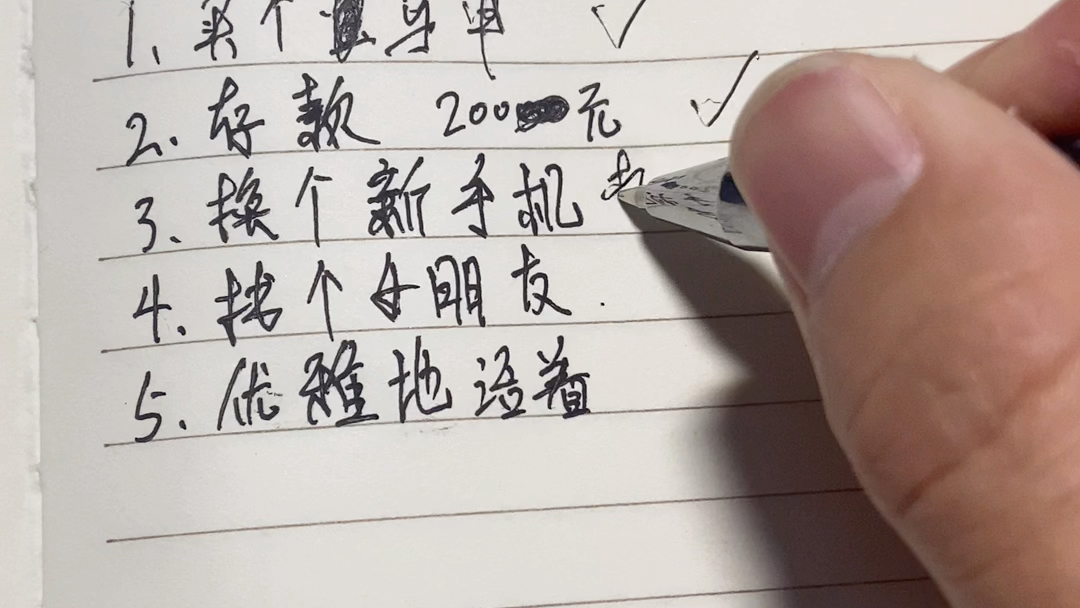 1、买个单
2.存款 200元 ✓
3、换个新手机
4、找个女朋友.
5、优雅地活着